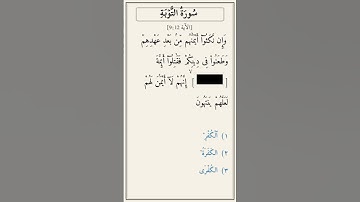 سُورَةُ التَّوْبَةِ
[الآية 12:9]
وَإِن نَّكَثُوٓا۟ أَيْمَٰنَهُم مِّنۢ بَعْدِ عَهْدِهِمْ
وَطَعَنُوا۟ فِى دِينِكُمْ فَقَٰتِلُوٓا۟ أَئِمَّةَ
[ ] إِنَّهُمْ لَآ أَيْمَٰنَ لَهُمْ
لَعَلَّهُمْ يَنتَهُونَ
١) ٱلْكُفْرِ
٢) الكَفَرَةَ
٣) الكُفْرَى